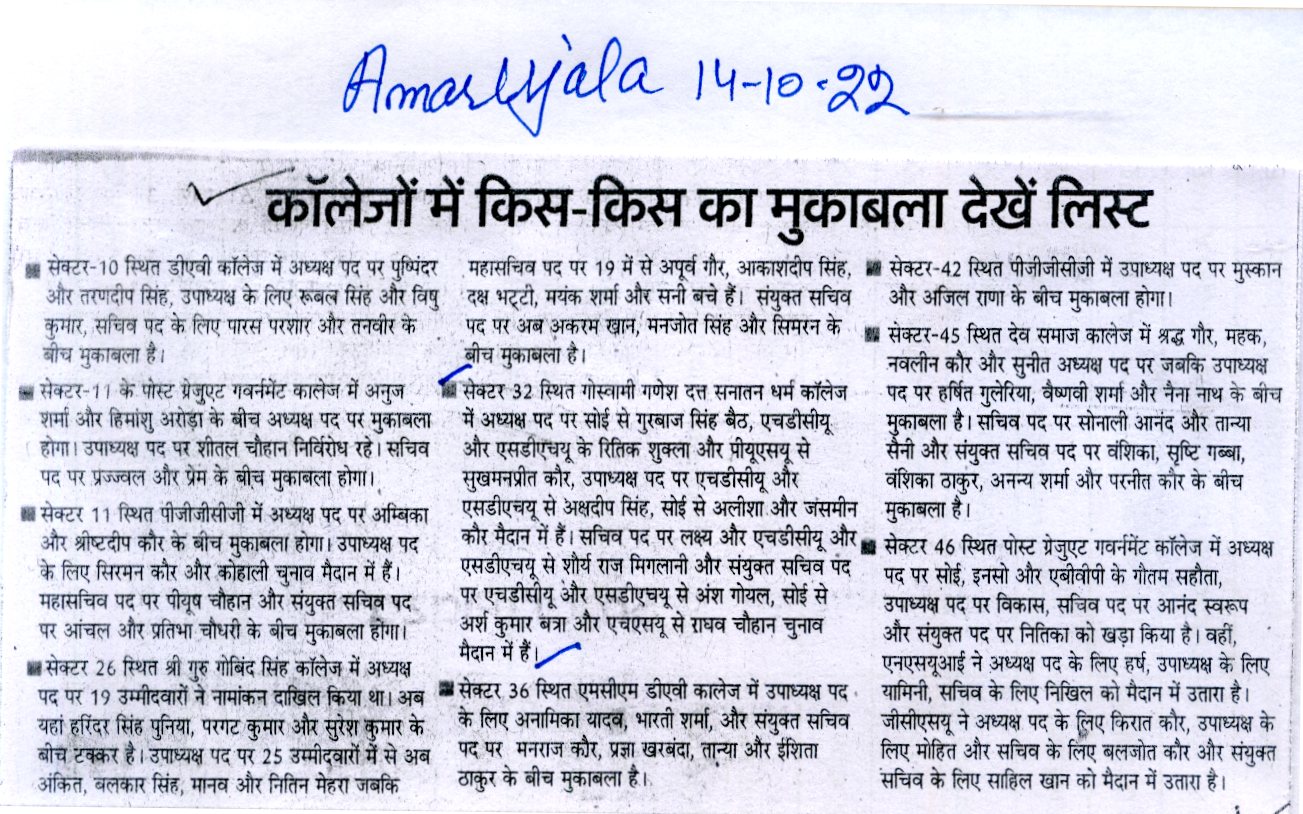 Amar Ujala 14-10-22
कॉलेजों में किस-किस का मुकाबला देखें लिस्ट
सेक्टर-10 स्थित डीएवी कॉलेज में अध्यक्ष पद पर पुष्पिंदर
और तरणदीप सिंह, उपाध्यक्ष के लिए रूबल सिंह और विषु
कुमार, सचिव पद के लिए पारस परशार और तनवीर के
बीच मुकाबला है।
सेक्टर-11 के पोस्ट ग्रेजुएट गवर्नमेंट कालेज में अनुज
शर्मा और हिमांशु अरोड़ा के बीच अध्यक्ष पद पर मुकाबला
होगा। उपाध्यक्ष पद पर शीतल चौहान निर्विरोध रहे। सचिव
पद पर प्रज्ज्वल और प्रेम के बीच मुकाबला होगा।
सेक्टर 11 स्थित पीजीजीसीजी में अध्यक्ष पद पर अम्बिका
और श्रीष्टदीप कौर के बीच मुकाबला होगा। उपाध्यक्ष पद
के लिए सिरमन कौर और कोहाली चुनाव मैदान में हैं।
महासचिव पद पर पीयूष चौहान और संयुक्त सचिव पद
पर आंचल और प्रतिभा चौधरी के बीच मुकाबला होगा।
सेक्टर 26 स्थित श्री गुरु गोबिंद सिंह कॉलेज में अध्यक्ष
पद पर 19 उम्मीदवारों ने नामांकन दाखिल किया था। अब
यहां हरिंदर सिंह पुनिया, परगट कुमार और सुरेश कुमार के
बीच टक्कर है। उपाध्यक्ष पद पर 25 उम्मीदवारों में से अब
अंकित, बलकार सिंह, मानव और नितिन मेहरा जबकि
महासचिव पद पर 19 में से अपूर्व गौर, आकाशदीप सिंह,
दक्ष भट्टी, मयंक शर्मा और सनी बचे हैं। संयुक्त सचिव
पद पर अब अकरम खान, मनजोत सिंह और सिमरन के
बीच मुकाबला है।
सेक्टर 32 स्थित गोस्वामी गणेश दत्त सनातन धर्म कॉलेज
में अध्यक्ष पद पर सोई से गुरबाज सिंह बैठ, एचडीसीयू
और एसडीएचयू के रितिक शुक्ला और पीयूएसयू से
सुखमनप्रीत कौर, उपाध्यक्ष पद पर एचडीसीयू और
एसडीएचयू से अक्षदीप सिंह, सोई से अलीशा और जसमीन
कौर मैदान में हैं। सचिव पद पर लक्ष्य और एचडीसीयू और
एसडीएचयू से शौर्य राज मिगलानी और संयुक्त सचिव पद
पर एचडीसीयू और एसडीएचयू से अंश गोयल, सोई से
अर्श कुमार बत्रा और एचएसयू से राघव चौहान चुनाव
मैदान में हैं।
सेक्टर 36 स्थित एमसीएम डीएवी कालेज में उपाध्यक्ष पद
के लिए अनामिका यादव, भारती शर्मा, और संयुक्त सचिव
पद पर मनराज कौर, प्रज्ञा खरबंदा, तान्या और ईशिता
ठाकुर के बीच मुकाबला है।
सेक्टर-42 स्थित पीजीजीसीजी में उपाध्यक्ष पद पर मुस्कान
और अजिल राणा के बीच मुकाबला होगा।
सेक्टर-45 स्थित देव समाज कालेज में श्रद्ध गौर, महक,
नवलीन कौर और सुनीत अध्यक्ष पद पर जबकि उपाध्यक्ष
पद पर हर्षित गुलेरिया, वैष्णवी शर्मा और नैना नाथ के बीच
मुकाबला है। सचिव पद पर सोनाली आनंद और तान्या
सैनी और संयुक्त सचिव पद पर वंशिका, सृष्टि गब्बा,
वंशिका ठाकुर, अनन्य शर्मा और परनीत कौर के बीच
मुकाबला है।
सेक्टर 46 स्थित पोस्ट ग्रेजुएट गवर्नमेंट कॉलेज में अध्यक्ष
पद पर सोई, इनसो और एबीवीपी के गौतम सहौता,
उपाध्यक्ष पद पर विकास, सचिव पद पर आनंद स्वरूप
और संयुक्त पद पर नितिका को खड़ा किया है। वहीं,
एनएसयूआई ने अध्यक्ष पद के लिए हर्ष, उपाध्यक्ष के लिए
यामिनी, सचिव के लिए निखिल को मैदान में उतारा है।
जीसीएसयू ने अध्यक्ष पद के लिए किरात कौर, उपाध्यक्ष के
लिए मोहित और सचिव के लिए बलजोत कौर और संयुक्त
सचिव के लिए साहिल खान को मैदान में उतारा है।